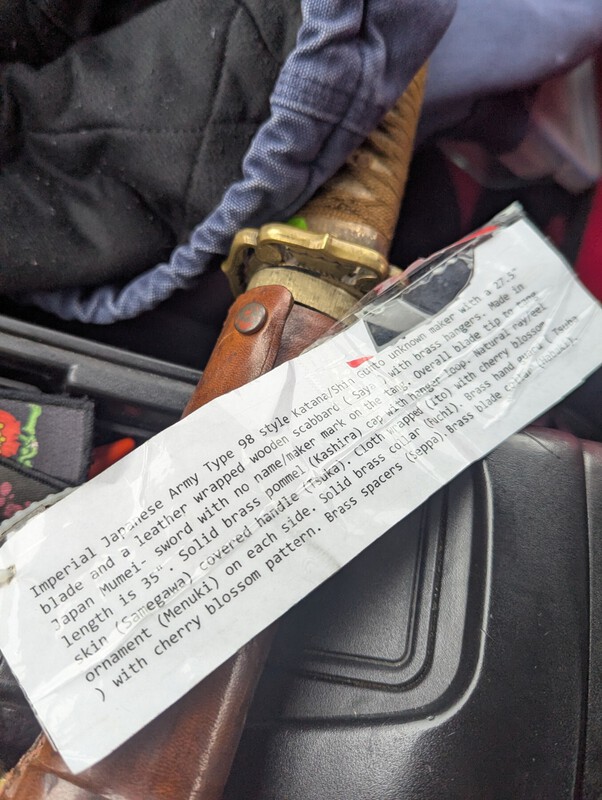 Imperial Japanese Army Type 98 style Katana/Shin Gunto unknown maker with a 27.5"
blade and a leather wrapped wooden scabbard ( Saya ) with brass hangers. Made in
Japan Mumei- sword with no name/maker mark on the tang. Overall blade tip to tang
length is 35". Solid brass pommel (Kashira) cap with hanger loop. Natural ray/eel
skin (Samegawa) covered handle (Tsuka). Cloth wrapped (Ito) with cherry blossom
ornament (Menuki) on each side. Solid brass collar (Fuchi). Brass hand guard ( Tsuba
) with cherry blossom pattern. Brass spacers (Seppa). Brass blade collar